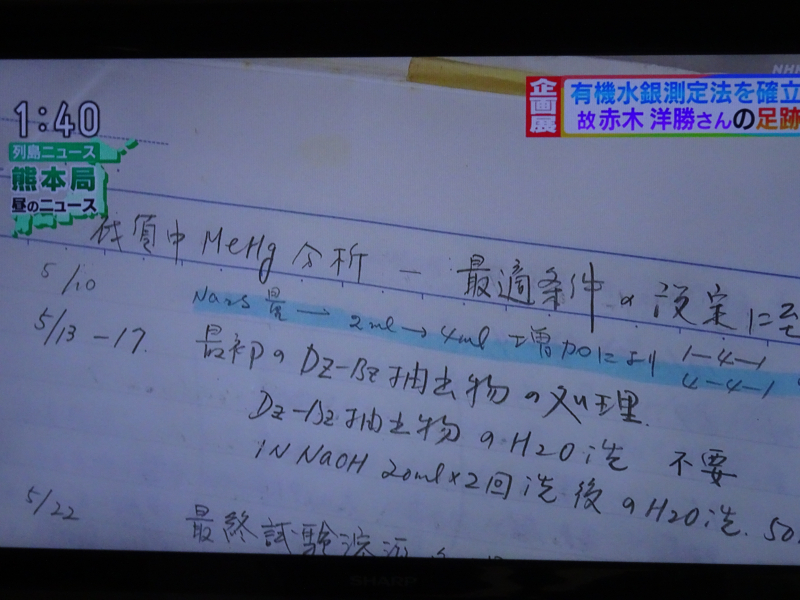 NHK
1:40
列島ニュース
熊本局
昼のニュース
企画展
有機水銀測定法を確立
故赤木 洋勝さんの足跡
底質中 MeHg 分析 — 最適条件の設定に至
5/10
Na2S 量 → 2ml → 4ml 増加により 1-4-1
4-4-1
5/13-17. 最初の Dz-Bz抽出物の処理.
Dz-Bz抽出物のH2O洗 不要
1N NaOH 20ml×2回洗後のH2O洗. 50
5/22 最終試験溶液
SHARP